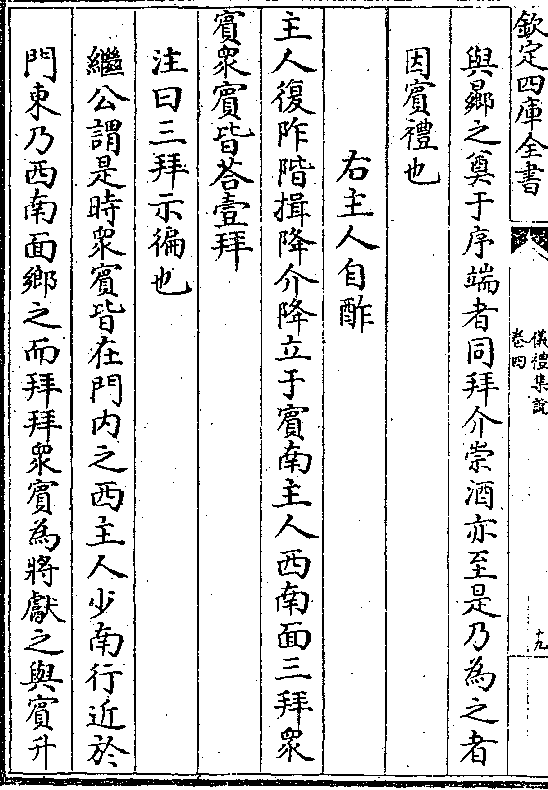 欽定四庫全書
儀禮集說
卷四
十九
與曏之奠于序端者同拜介崇酒亦至是乃為之者
因賓禮也
右主人自酢
主人復阼階揖降介降立于賓南主人西南面三拜衆
賓衆賓皆荅壹拜
注曰三拜示徧也
繼公謂是時衆賓皆在門内之西主人少南行近於
門東乃西南面鄉之而拜拜衆賓為將獻之與賓升